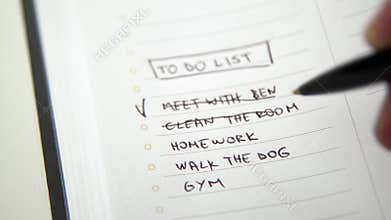 TO DO LIST
MEET WITH BEN
CLEAN THE ROOM
HOMEWORK
WALK THE DOG
GYM